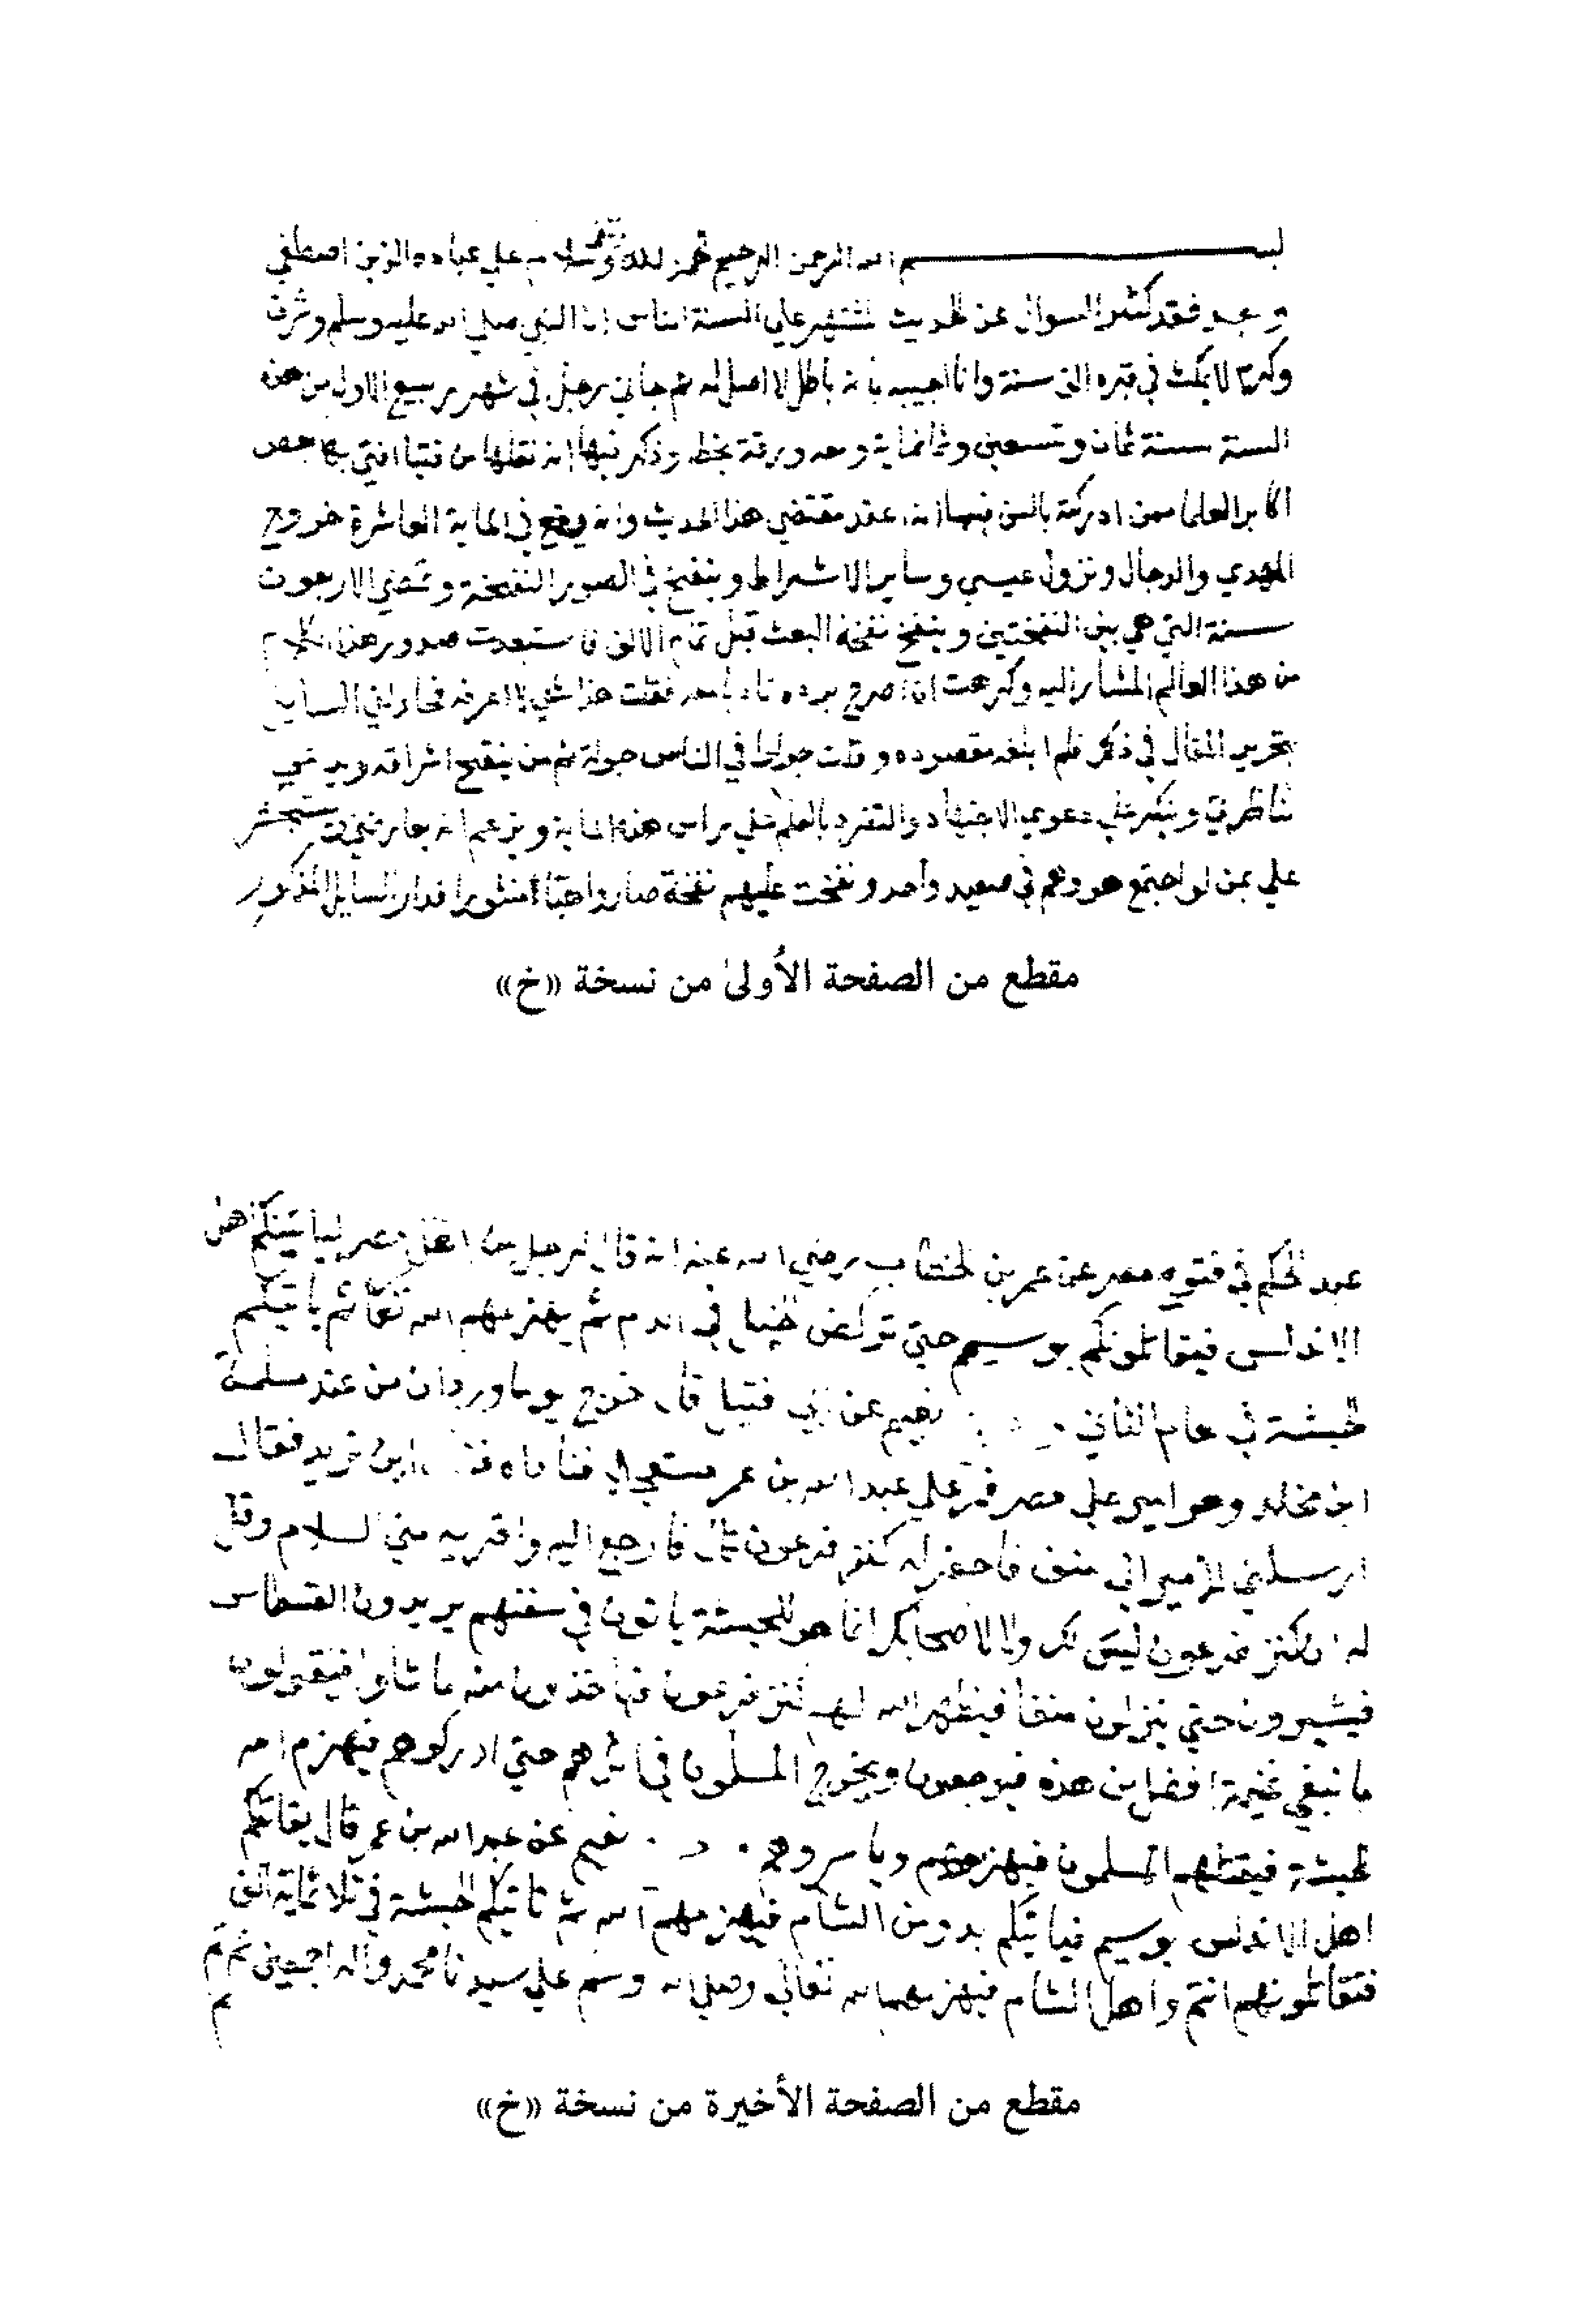 بسم الله الرحمن الرحيم الحمد لله وسلام علي عباده الذين اصطفي
وبعد فقد كثر السوال عن الحديث المشتهر علي السنة الناس ان النبي صلي الله عليه وسلم وشرف
وكرم لا يمكث في قبره الف سنة وانا اجيب بانه باطل لا اصل له ثم جاني رجل في شهر ربيع الاول من هذه
السنة سنة ثمان وتسعين وثمانماية ومعه ورقة بخطه وذكر فيها انه نقلها من فتيا افتي بها بعض
اكابر العلما ممن ادركته بالسن فيها انه اعتمد مقتضي هذا الحديث وانه يقع في الماية العاشرة خروج
المهدي والدجال ونزول عيسي وساير الاشراط وينفخ في الصور النفخة وتمضي الاربعون
سنة التي هي بين النفختين وينفخ نفخة البعث قبل تمام الالف فاستبعدت صدور هذا الكلام
من هذا العالم المشار اليه وكرهت ان اصرح برده تادبا معه فقلت هذا شي لا اعرفه فحاولني السايل
تحرير المقال في ذلك فلم ابلغه مقصوده وقلت جولوا في الناس جولة فثم من ينفخ اشداقه ويدعي
مناظرتي وينكر علي دعوي الاجتهاد والتفرد بالعلم علي راس هذه الماية ويزعم انه يعارضني ويستجيش
علي بمن لو اجتمع هو وهم في صعيد واحد ونفخت عليهم نفخة صاروا هبا منثورا فدار السايل المذكور
مقطع من الصفحة الأولىٰ من نسخة «خ»
عبد الحكم في فتوح مصر عن عمر بن الخطاب رضي الله عنه انه قال لرجل من اهل مصر لياتينكم اهل
الاندلس فيقاتلونكم بوسيم حتي تركض الخيل في الدم ثم يهزمهم الله تعا ثم ياتيكم
الحبشة في العام الثاني نعيم عن ابي قتيل قال خرج يوما وردان من عند مسلمة
ابن مخلد وهو امير علي مصر فمر علي عبد الله بن عمر مستعجلا فناداه اين تريد فقال
ارسلني الامير الي منف فاحفر له كنز فرعون قال فارجع اليه واقريه مني السلام وقل
له ان كنز فرعون ليس لك ولا لاصحابك انما هو للحبشة ياتون في سفنهم يريدون الفسطاس
فيسيرون حتي ينزلون منفا فيظهر الله لهم كنز فرعون فياخذون منه ما شاوا فيقولون
ما نبغي غنيمة افضل من هذه فيرجعون ويخرج المسلمون في اثرهم حتي ادركوهم فيهزم الله
الحبشة فيقتلهم المسلمون فيهزموهم وياسروهم نعيم عن عبد الله بن عمر قال يقاتلكم
اهل الاندلس بوسيم فياتيكم مدد من الشام فيهزمهم الله ثم تاتيكم الحبشة في ثلاثماية الف
فتقاتلونهم انتم واهل الشام فيهزمهم الله تعالي وصلي الله وسلم علي سيدنا محمد واله اجمعين تم
مقطع من الصفحة الأخيرة من نسخة «خ»